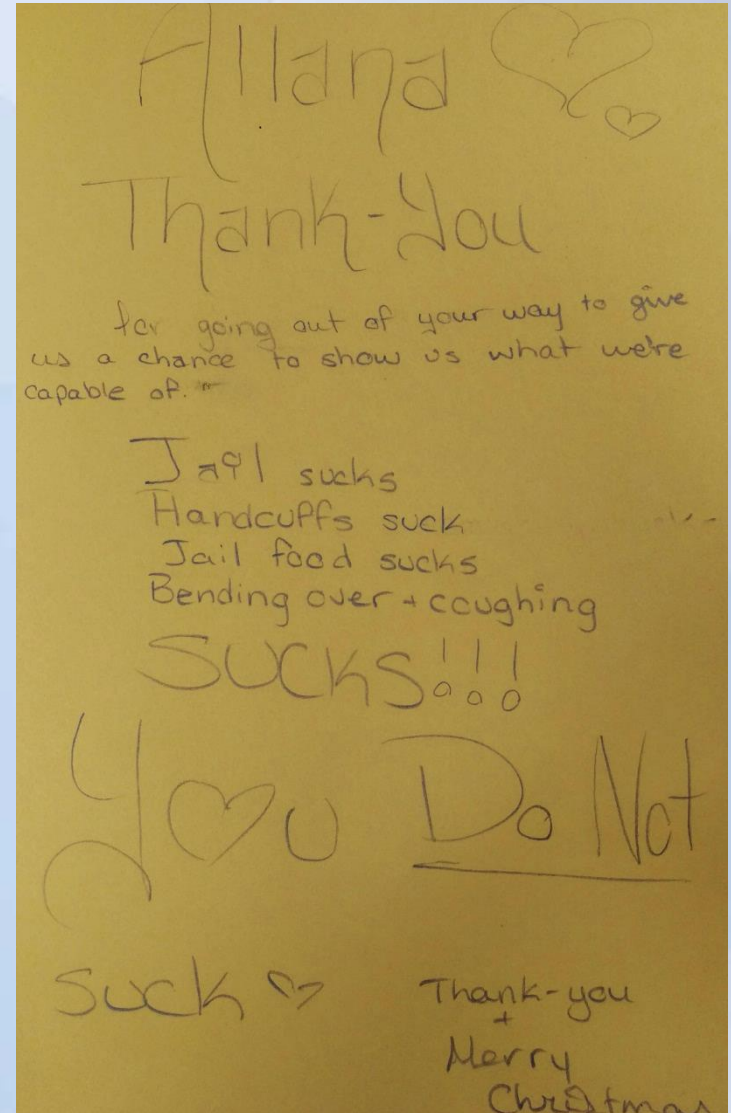 Allana
Thank-You
for going out of your way to give
us a chance to show us what we're
capable of.
Jail sucks
Handcuffs suck
Jail food sucks
Bending over + coughing
SUCKS!!!
You Do Not
suck
Thank-you
+
Merry
Christmas